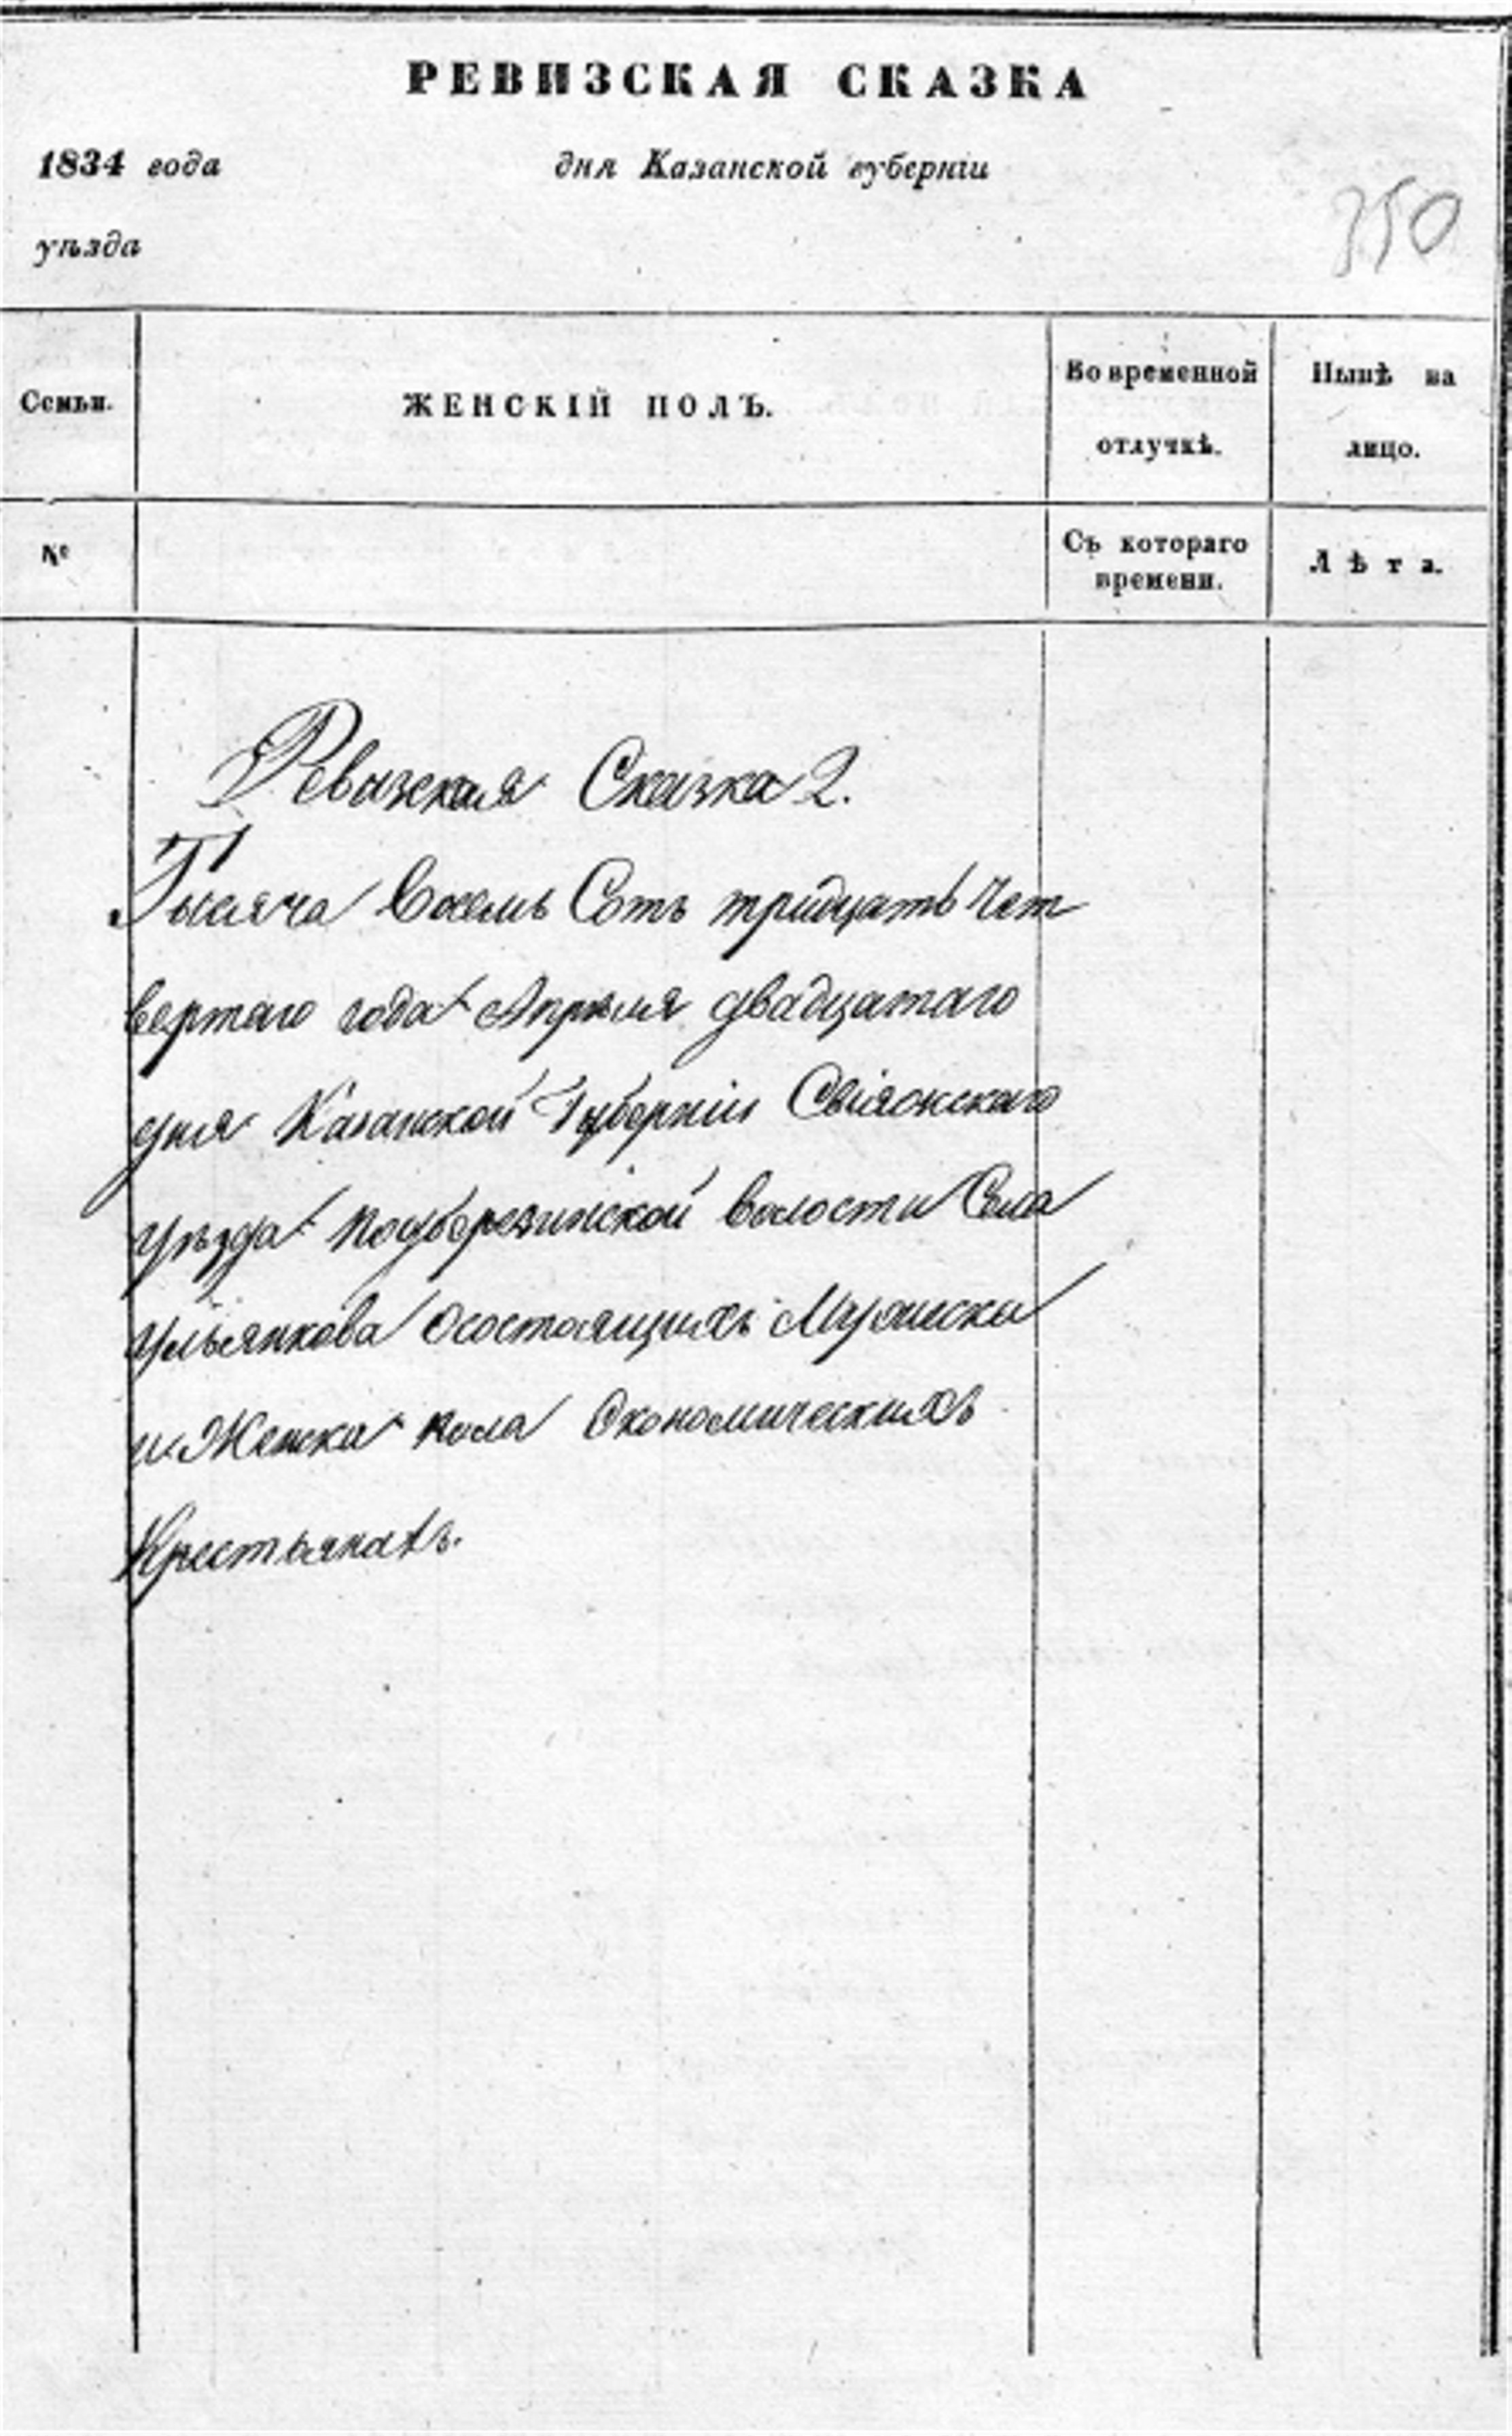 РЕВИЗСКАЯ СКАЗКА
1834 года дня Казанской губернiи
350
уѣзда
Семьи. ЖЕНСКIЙ ПОЛЪ. Во временной отлучкѣ. Нынѣ на лицо.
№ Съ котораго времени. Лѣта.
Ревизская Сказка 2.
Тысяча восемь Сотъ тридцать чет
вертаго года Апрѣля двадцатаго
дня Казанской Губернiи Свiяжскаго
уѣзда подберезинской волости Села
Ульянкова осостоящихъ Мужеска
и Женска пола Экономическихъ
Крестьянахъ.